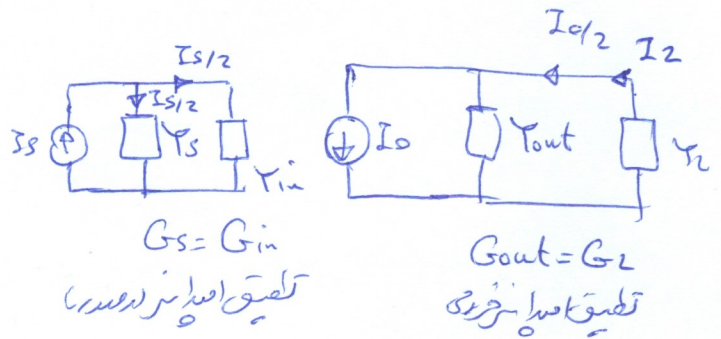 Is/2
Is/2
Is
Ys
Yin
Gs = Gin
تطبیق امپدانس (درصدر)
Io/2
I2
Io
Yout
YL
Gout = GL
تطبیق امپدانس خروجی